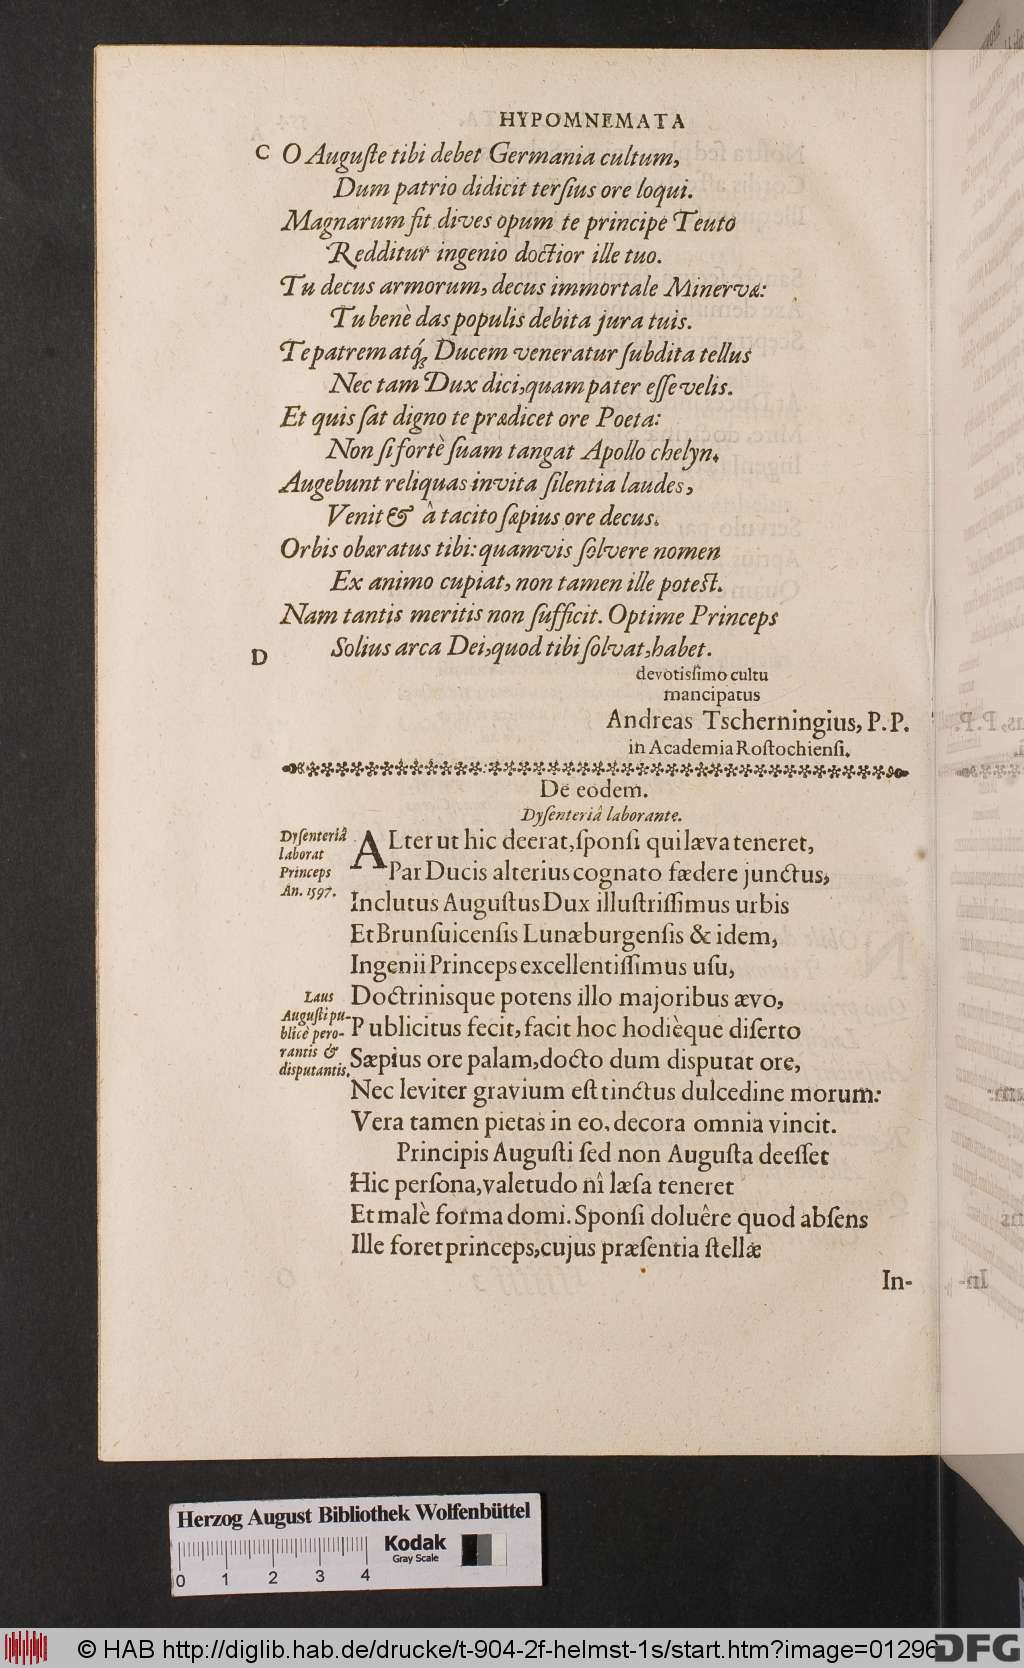 HYPOMNEMATA
C O Auguſte tibi debet Germania cultum,
Dum patrio didicit terſius ore loqui.
Magnarum fit dives opum te principe Teuto
Redditur ingenio doctior ille tuo.
Tu decus armorum, decus immortale Minervæ:
Tu benè das populis debita jura tuis.
Te patrem atq́; Ducem veneratur ſubdita tellus
Nec tam Dux dici, quam pater eſſe velis.
Et quis ſat digno te prædicet ore Poeta:
Non ſi fortè ſuam tangat Apollo chelyn.
Augebunt reliquas invita ſilentia laudes,
Venit & â tacito ſæpius ore decus.
Orbis obæratus tibi: quamvis ſolvere nomen
Ex animo cupiat, non tamen ille poteſt.
Nam tantis meritis non ſufficit. Optime Princeps
D Solius arca Dei, quod tibi ſolvat, habet.
devotisſimo cultu
mancipatus
Andreas Tscherningius, P. P.
in Academia Roſtochienſi.
De eodem.
Dyſenteriâ laborante.
Dyſenteriâ
laborat
Princeps
An. 1597.
ALter ut hic deerat, ſponſi qui læva teneret,
Par Ducis alterius cognato fædere junctus,
Inclutus Auguſtus Dux illuſtriſſimus urbis
Et Brunſuicenſis Lunæburgenſis & idem,
Ingenii Princeps excellentiſſimus uſu,
Laus
Auguſti pu-
blicè pero-
rantis &
disputantis.
Doctrinisque potens illo majoribus ævo,
Publicitus fecit, facit hoc hodièque diſerto
Sæpius ore palam, docto dum disputat ore,
Nec leviter gravium eſt tinctus dulcedine morum:
Vera tamen pietas in eo, decora omnia vincit.
Principis Auguſti ſed non Auguſta deeſſet
Hic perſona, valetudo nî læſa teneret
Et malè forma domi. Sponſi doluêre quod abſens
Ille foret princeps, cujus præſentia ſtellæ
In-
Herzog August Bibliothek Wolfenbüttel
Kodak
Gray Scale
0 1 2 3 4
© HAB http://diglib.hab.de/drucke/t-904-2f-helmst-1s/start.htm?image=01296
DFG